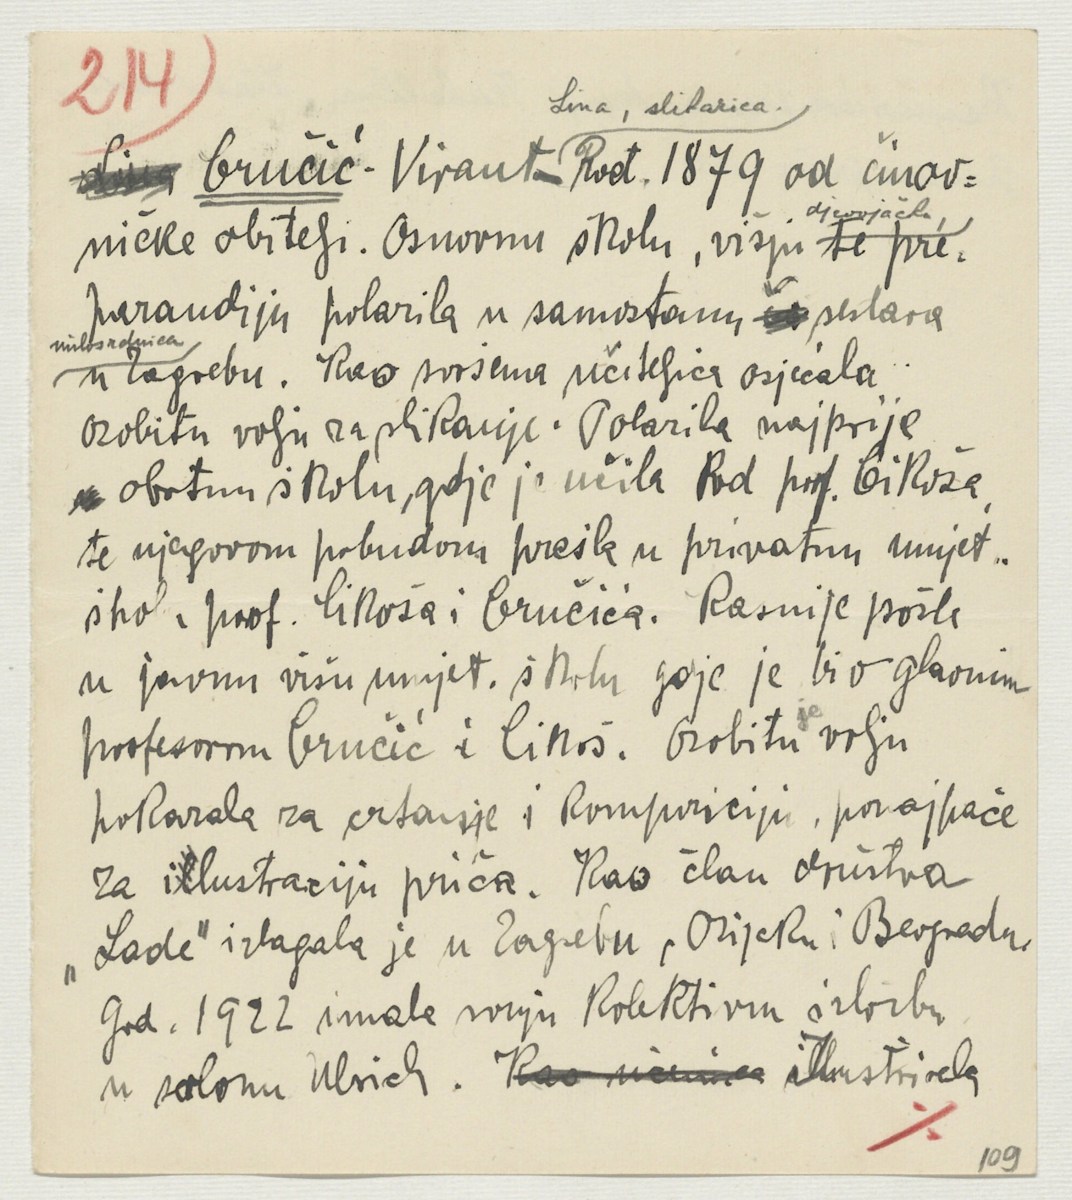 214)
Lina, slikarica.
Lina Crnčić-Virant Rođ. 1879 od činov=
djevojačku,
ničke obitelji. Osnovnu školu, višju te pre-
parandiju polazila u samostanu sestara
milosrdnica
u Zagrebu. Kao svršena učiteljica osjećala
osobitu volju za slikanje. Polazila najprije
obrtnu školu, gdje je učila kod prof. Čikoša,
te njegovom pobudom prešla u privatnu umjet.
škol. prof. Čikoša i Crnčića. Kasnije pošla
u javnu višu umjet. školu gdje je bio glavnim
profesorom Crnčić i Čikoš. Osobitu je volju
pokazala za crtanje i kompoziciju, ponajpače
za illustraciju priča. Kao član društva
„Lade" izlagala je u Zagrebu, Osijeku i Beogradu.
God. 1922 imala svoju kolektivnu izložbu
u salonu Ulrich. Kao učenica illustrirala
./.
109